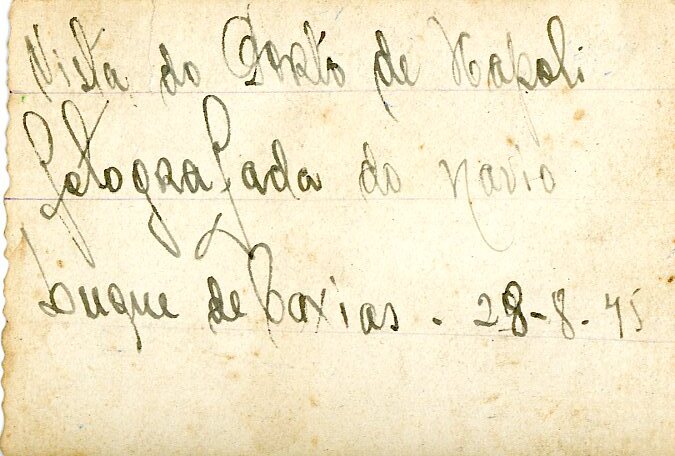 Vista do Porto de Napoli
fotografada do navio
Duque de Caxias - 28-8-45